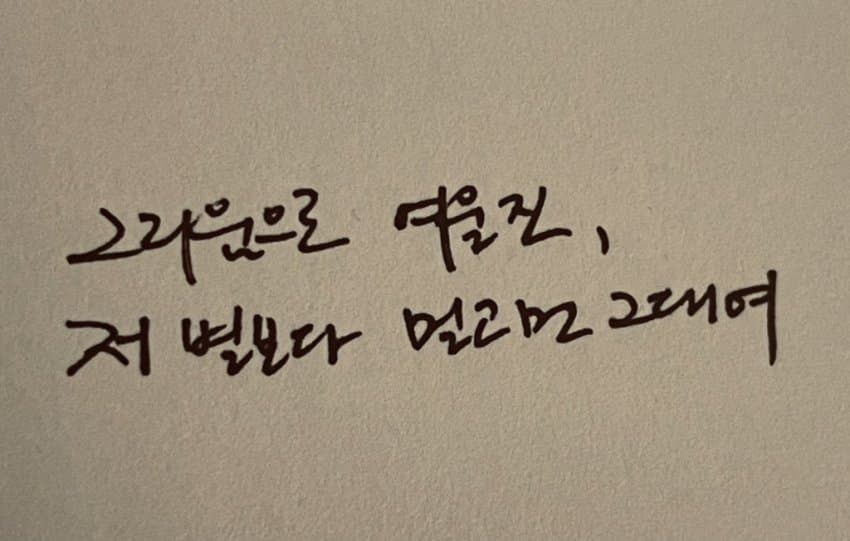 그리움으로 여울진,
저 별보다 멀고 먼 그대여